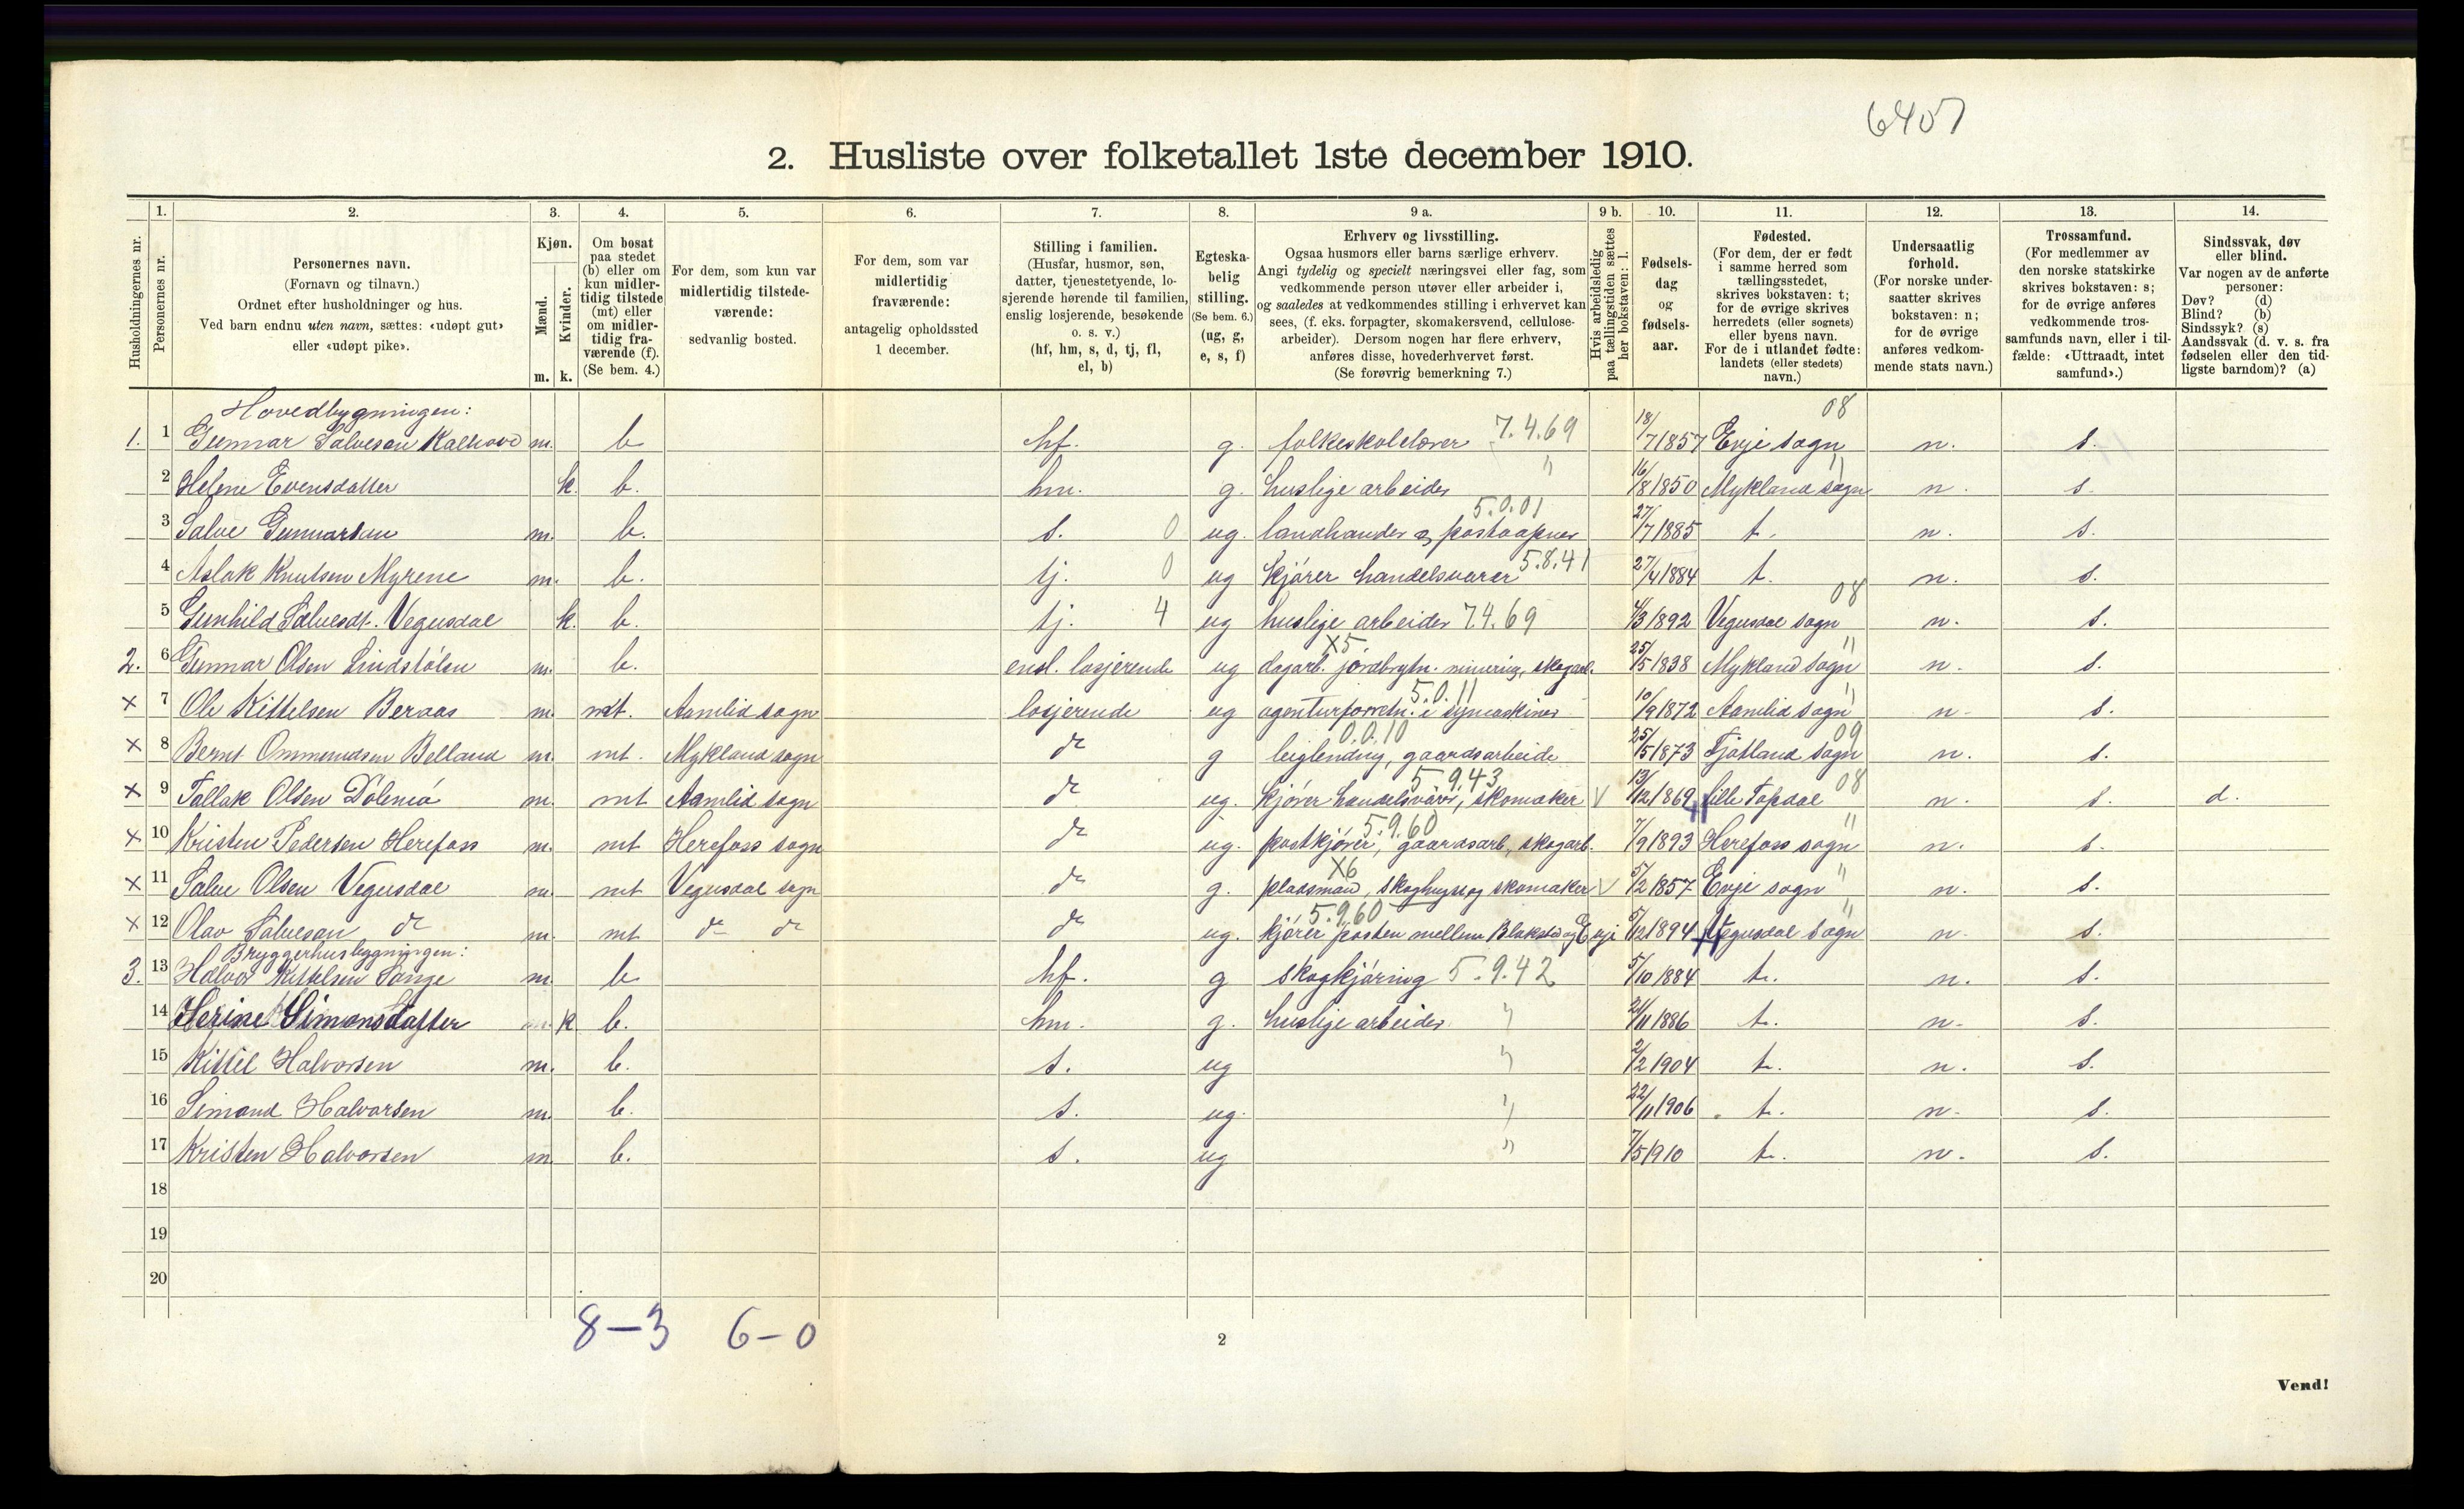 6407
2. Husliste over folketallet 1ste december 1910.
1. 2. 3. 4. 5. 6. 7. 8. 9 a. 9 b. 10. 11. 12. 13. 14.
Husholdningernes nr.
Personernes nr.
Personernes navn.
(Fornavn og tilnavn.)
Ordnet efter husholdninger og hus.
Ved barn endnu uten navn, sættes: «udøpt gut»
eller «udøpt pike».
Kjøn.
Mænd.
Kvinder.
m. k.
Om bosat
paa stedet
(b) eller om
kun midler-
tidig tilstede
(mt) eller
om midler-
tidig fra-
værende (f).
(Se bem. 4.)
For dem, som kun var
midlertidig tilstede-
værende:
sedvanlig bosted.
For dem, som var
midlertidig
fraværende:
antagelig opholdssted
1 december.
Stilling i familien.
(Husfar, husmor, søn,
datter, tjenestetyende, lo-
sjerende hørende til familien,
enslig losjerende, besøkende
o. s. v.)
(hf, hm, s, d, tj, fl,
el, b)
Egteska-
belig
stilling.
(Se bem. 6.)
(ug, g,
e, s, f)
Erhverv og livsstilling.
Ogsaa husmors eller barns særlige erhverv.
Angi tydelig og specielt næringsvei eller fag, som
vedkommende person utøver eller arbeider i,
og saaledes at vedkommendes stilling i erhvervet kan
sees, (f. eks. forpagter, skomakersvend, cellulose-
arbeider). Dersom nogen har flere erhverv,
anføres disse, hovederhvervet først.
(Se forøvrig bemerkning 7.)
Hvis arbeidsledig
paa tællingstiden sættes
her bokstaven: l.
Fødsels-
dag
og
fødsels-
aar.
Fødested.
(For dem, der er født
i samme herred som
tællingsstedet,
skrives bokstaven: t;
for de øvrige skrives
herredets (eller sognets)
eller byens navn.
For de i utlandet fødte:
landets (eller stedets)
navn.)
Undersaatlig
forhold.
(For norske under-
saatter skrives
bokstaven: n;
for de øvrige
anføres vedkom-
mende stats navn.)
Trossamfund.
(For medlemmer av
den norske statskirke
skrives bokstaven: s;
for de øvrige anføres
vedkommende tros-
samfunds navn, eller i til-
fælde: «Uttraadt, intet
samfund».)
Sindssvak, døv
eller blind.
Var nogen av de anførte
personer:
Døv? (d)
Blind? (b)
Sindssyk? (s)
Aandssvak (d. v. s. fra
fødselen eller den tid-
ligste barndom)? (a)
Hovedbygningen:
1. 1 Gunnar Salvesen Kalhovd m. b hf. g. folkeskolelærer 7.4.69 18/7 1857 Evje sogn 08 n. s.
2 Helene Evensdatter k. b. hm. g. huslige arbeider " 16/8 1850 Mykland sogn " n. s.
3 Salve Gunnarsen m. b. s. 0 ug. landhandler & postaapner 5.0.01 27/7 1885 t. n. s.
4 Aslak Knutsen Myrene m. b. tj. 0 ug kjører handelsvarer 5.8.41 27/4 1884 t. n. s.
5 Gunhild Salvesdt. Vegusdal k. b. tj. 4 ug huslige arbeider 7.4.69 4/3 1892 Vegusdal sogn 08 n. s.
2. 6 Gunnar Olsen Lindstølen m. b. ensl. losjerende ug dagarb. jordbrytn. minering, skogarb. X5. 25/5 1838 Mykland sogn " n. s.
X 7 Ole Kittelsen Beraas m. mt. Aamlid sogn losjerende ug agenturforretn. i symaskiner 5.0.11 10/9 1872 Aamlid sogn " n. s.
X 8 Bernt Ommundsen Belland m. mt. Mykland sogn do g leiglending, gaardsarbeide 0.0.10 25/5 1873 Fjotland sogn 09 n. s.
X 9 Tallak Olsen Dølemo m. mt Aamlid sogn do ug. kjører handelsvarer, skomaker 5 9.43 V 13/12 1869 Lille Topdal 08 n. s. d.
X 10 Kristen Pedersen Herefoss m. mt Herefoss sogn do ug. postkjører, gaardsarb., skogarb. 5.9.60 7/9 1893 Herefoss sogn " n. s.
X 11 Salve Olsen Vegusdal m. mt Vegusdal sogn do g. pladsmand, skoghugst og skomaker X6 V 5/2 1857 Evje sogn " n. s.
X 12 Olav Salvesen do m. mt do do do ug. kjører posten mellem Blakstad og Evje 5.9.60 5/12 1894 Vegusdal sogn " n. s.
Bryggerhusbygningen:
3. 13 Halvor Kittelsen Tange m. b hf. g skogkjøring 5.9.42 5/10 1884 t. n. s.
14 Herine Simonsdatter k b. hm. g. huslige arbeider " 24/11 1886 t. n. s.
15 Kittil Halvorsen m. b. s. ug " 2/2 1904 t. n. s.
16 Simond Halvorsen m. b. s. ug. " 22/11 1906 t. n. s.
17 Kristen Halvorsen m. b. s. ug " 7/5 1910 t. n. s.
18
19
20
8–3 6–0
2
Vend!